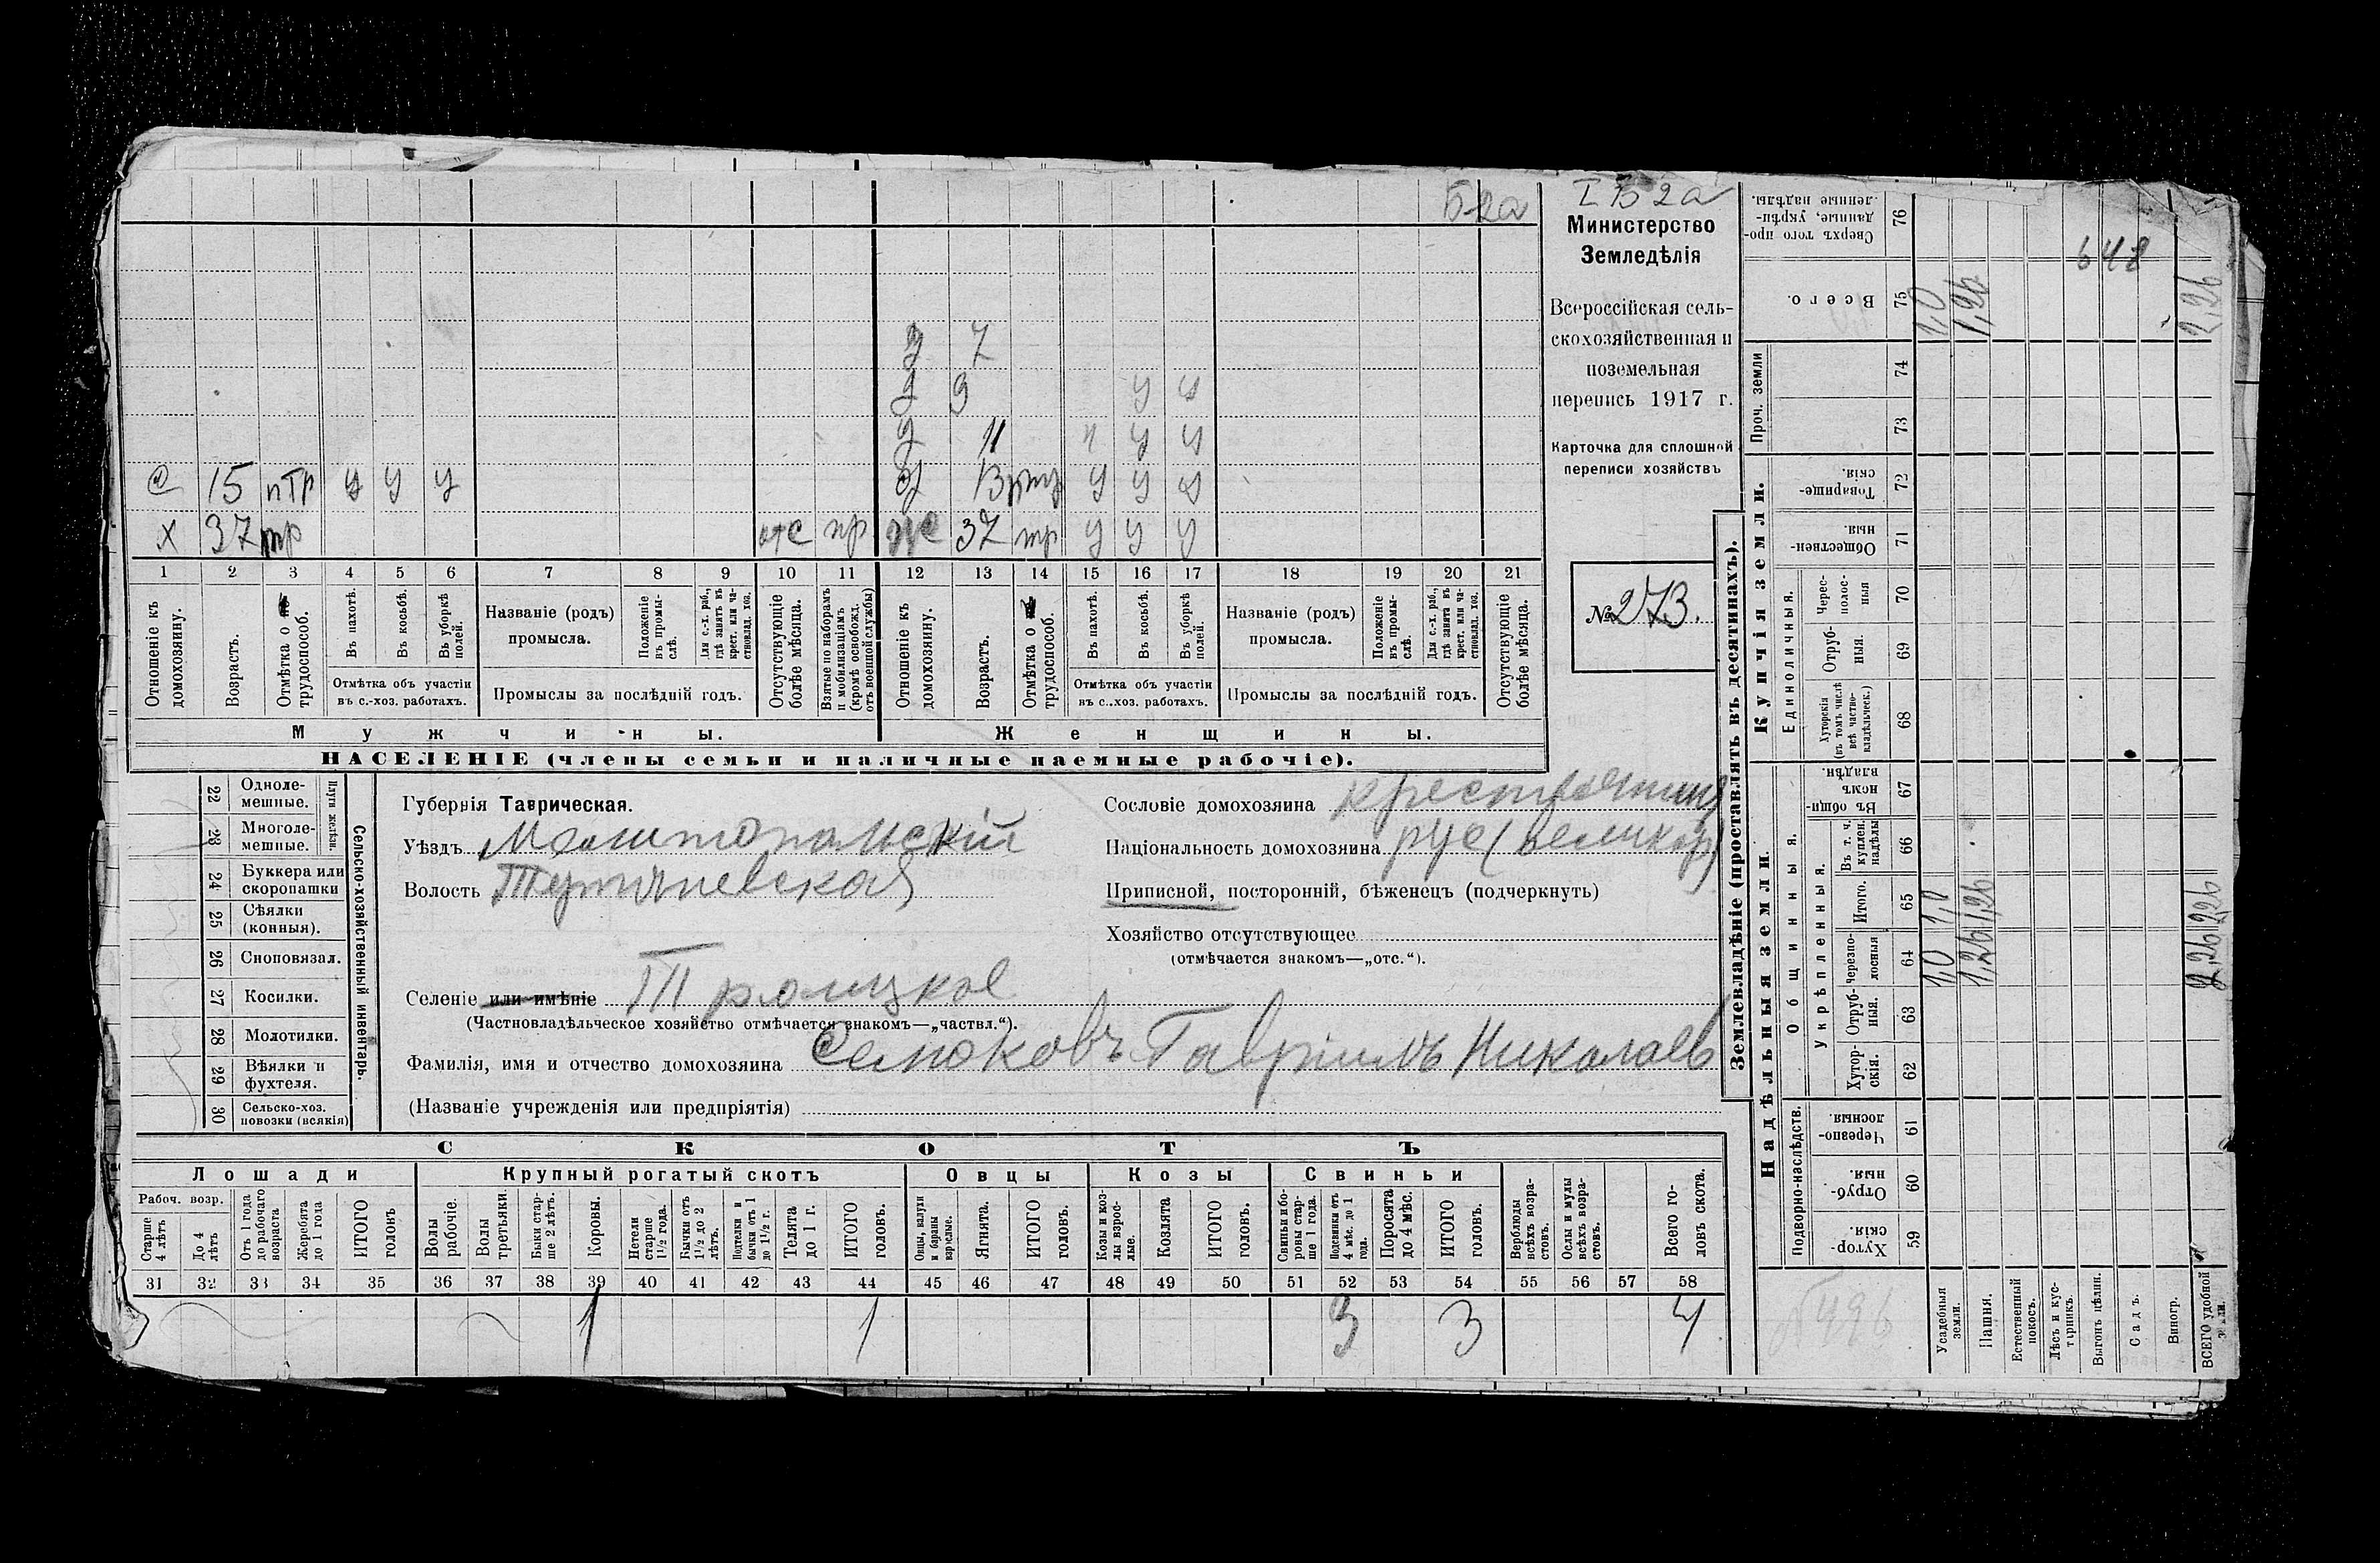 Б-2а
І Б 2а
Министерство
Земледѣлія
Всероссійская сель-
скохозяйственная и
поземельная
перепись 1917 г.
Карточка для сплошной
переписи хозяйствъ
№ 273.
д 7
д 9 у у
д 11 ч у у
с 15 птр у у у д 13 у у у
х 37 тр отс пр 37 тр у у у
1 2 3 4 5 6 7 8 9 10 11 12 13 14 15 16 17 18 19 20 21
Отношеніе къ домохозяину.
Возрастъ.
Отмѣтка о трудоспособ.
Въ пахотѣ.
Въ косьбѣ.
Въ уборкѣ полей.
Отмѣтка объ участіи въ с.-хоз. работахъ.
Названіе (родъ) промысла.
Положеніе въ промы-слѣ.
Для с.-х. раб., гдѣ занятъ въ крест. или ча-стновлад. хоз.
Промыслы за послѣдній годъ.
Отсутствующіе болѣе мѣсяца.
Взятые по наборамъ и мобилизаціямъ (кромѣ освобожд. отъ военной службы)
Отношеніе къ домохозяину.
Возрастъ.
Отмѣтка о трудоспособ.
Въ пахотѣ.
Въ косьбѣ.
Въ уборкѣ полей.
Отмѣтка объ участіи въ с.-хоз. работахъ.
Названіе (родъ) промысла.
Положеніе въ промы-слѣ.
Для с.-х. раб., гдѣ занятъ въ крест. или ча-стновлад. хоз.
Промыслы за послѣдній годъ.
Отсутствующіе болѣе мѣсяца.
Мужчины.
Женщины.
НАСЕЛЕНІЕ (члены семьи и наличные наемные рабочіе).
22 Одноле-мешные.
23 Многоле-мешные.
Плуги желѣзн.
24 Буккера или скоропашки
25 Сѣялки (конныя).
26 Сноповязал.
27 Косилки.
28 Молотилки.
29 Вѣялки и фухтеля.
30 Сельско-хоз. повозки (всякія)
Сельско-хозяйственный инвентарь.
Губернія Таврическая.
Уѣздъ Мелитопольскій
Волость
Селеніе или имѣніе Троицкое
(Частновладѣльческое хозяйство отмѣчается знакомъ—„частвл.“).
Фамилія, имя и отчество домохозяина Семоковъ Гавріилъ Николаев
(Названіе учрежденія или предпріятія)
Сословіе домохозяина крестьянинъ
Національность домохозяина рус (великор)
Приписной, посторонній, бѣженецъ (подчеркнуть)
Хозяйство отсутствующее
(отмѣчается знакомъ—„отс.“).
СКОТЪ
Лошади
Крупный рогатый скотъ
Овцы
Козы
Свиньи
Рабоч. возр.
Старше 4 лѣтъ
До 4 лѣтъ
Отъ 1 года до рабочаго возраста
Жеребята до 1 года
ИТОГО головъ
Волы рабочіе.
Волы третьяки.
Быки стар-ше 2 лѣтъ.
Коровы.
Нетели старше 1½ года.
Бычки отъ 1½ до 2 лѣтъ.
Подтелки и бычки отъ 1 до 1½ г.
Телята до 1 г.
ИТОГО головъ.
Овцы, валухи и бараны взрослые.
Ягнята.
ИТОГО головъ.
Козы и коз-лы взрос-лые.
Козлята
ИТОГО головъ.
Свиньи и бо-ровы стар-ше 1 года.
Подсвинки отъ 4 мѣс. до 1 года.
Поросята до 4 мѣс.
ИТОГО головъ.
Верблюды всѣхъ возра-стовъ.
Ослы и мулы всѣхъ возра-стовъ.
Всего го-ловъ скота.
31 32 33 34 35 36 37 38 39 40 41 42 43 44 45 46 47 48 49 50 51 52 53 54 55 56 57 58
1 1 3 3 4
Землевладѣніе (проставлять въ десятинахъ).
Надѣльныя земли
Купчія земли.
Проч. земли
Подворно-наслѣдств.
Общинныя.
Укрѣпленныя.
Единоличныя.
Хутор-скія. 59
Отруб-ныя. 60
Черезпо-лосныя 61
Хутор-скія. 62
Отруб-ныя. 63
Черезпо-лосныя 64
Итого. 65
Въ т. ч. куплен. надѣлы 66
Въ общин-номъ владѣн. 67
Хуторскія (въ томъ числѣ всѣ частно-владѣльческ.) 68
Отруб-ныя. 69
Черес-полос-ныя 70
Обществен-ныя. 71
Товарище-скія. 72
73
74
Всего. 75
Сверхъ того про-данные, укрѣп-ленные надѣлы. 76
Усадебныя земли. 1,0 1,0 1,0
Пашня. 1,26 1,26 1,26
Естественный покосъ.
Лѣсъ и кус-тарникъ.
Выгонъ цѣлин.
Садъ.
Виногр.
ВСЕГО удобной земли. 2,26 2,26 2,26
648